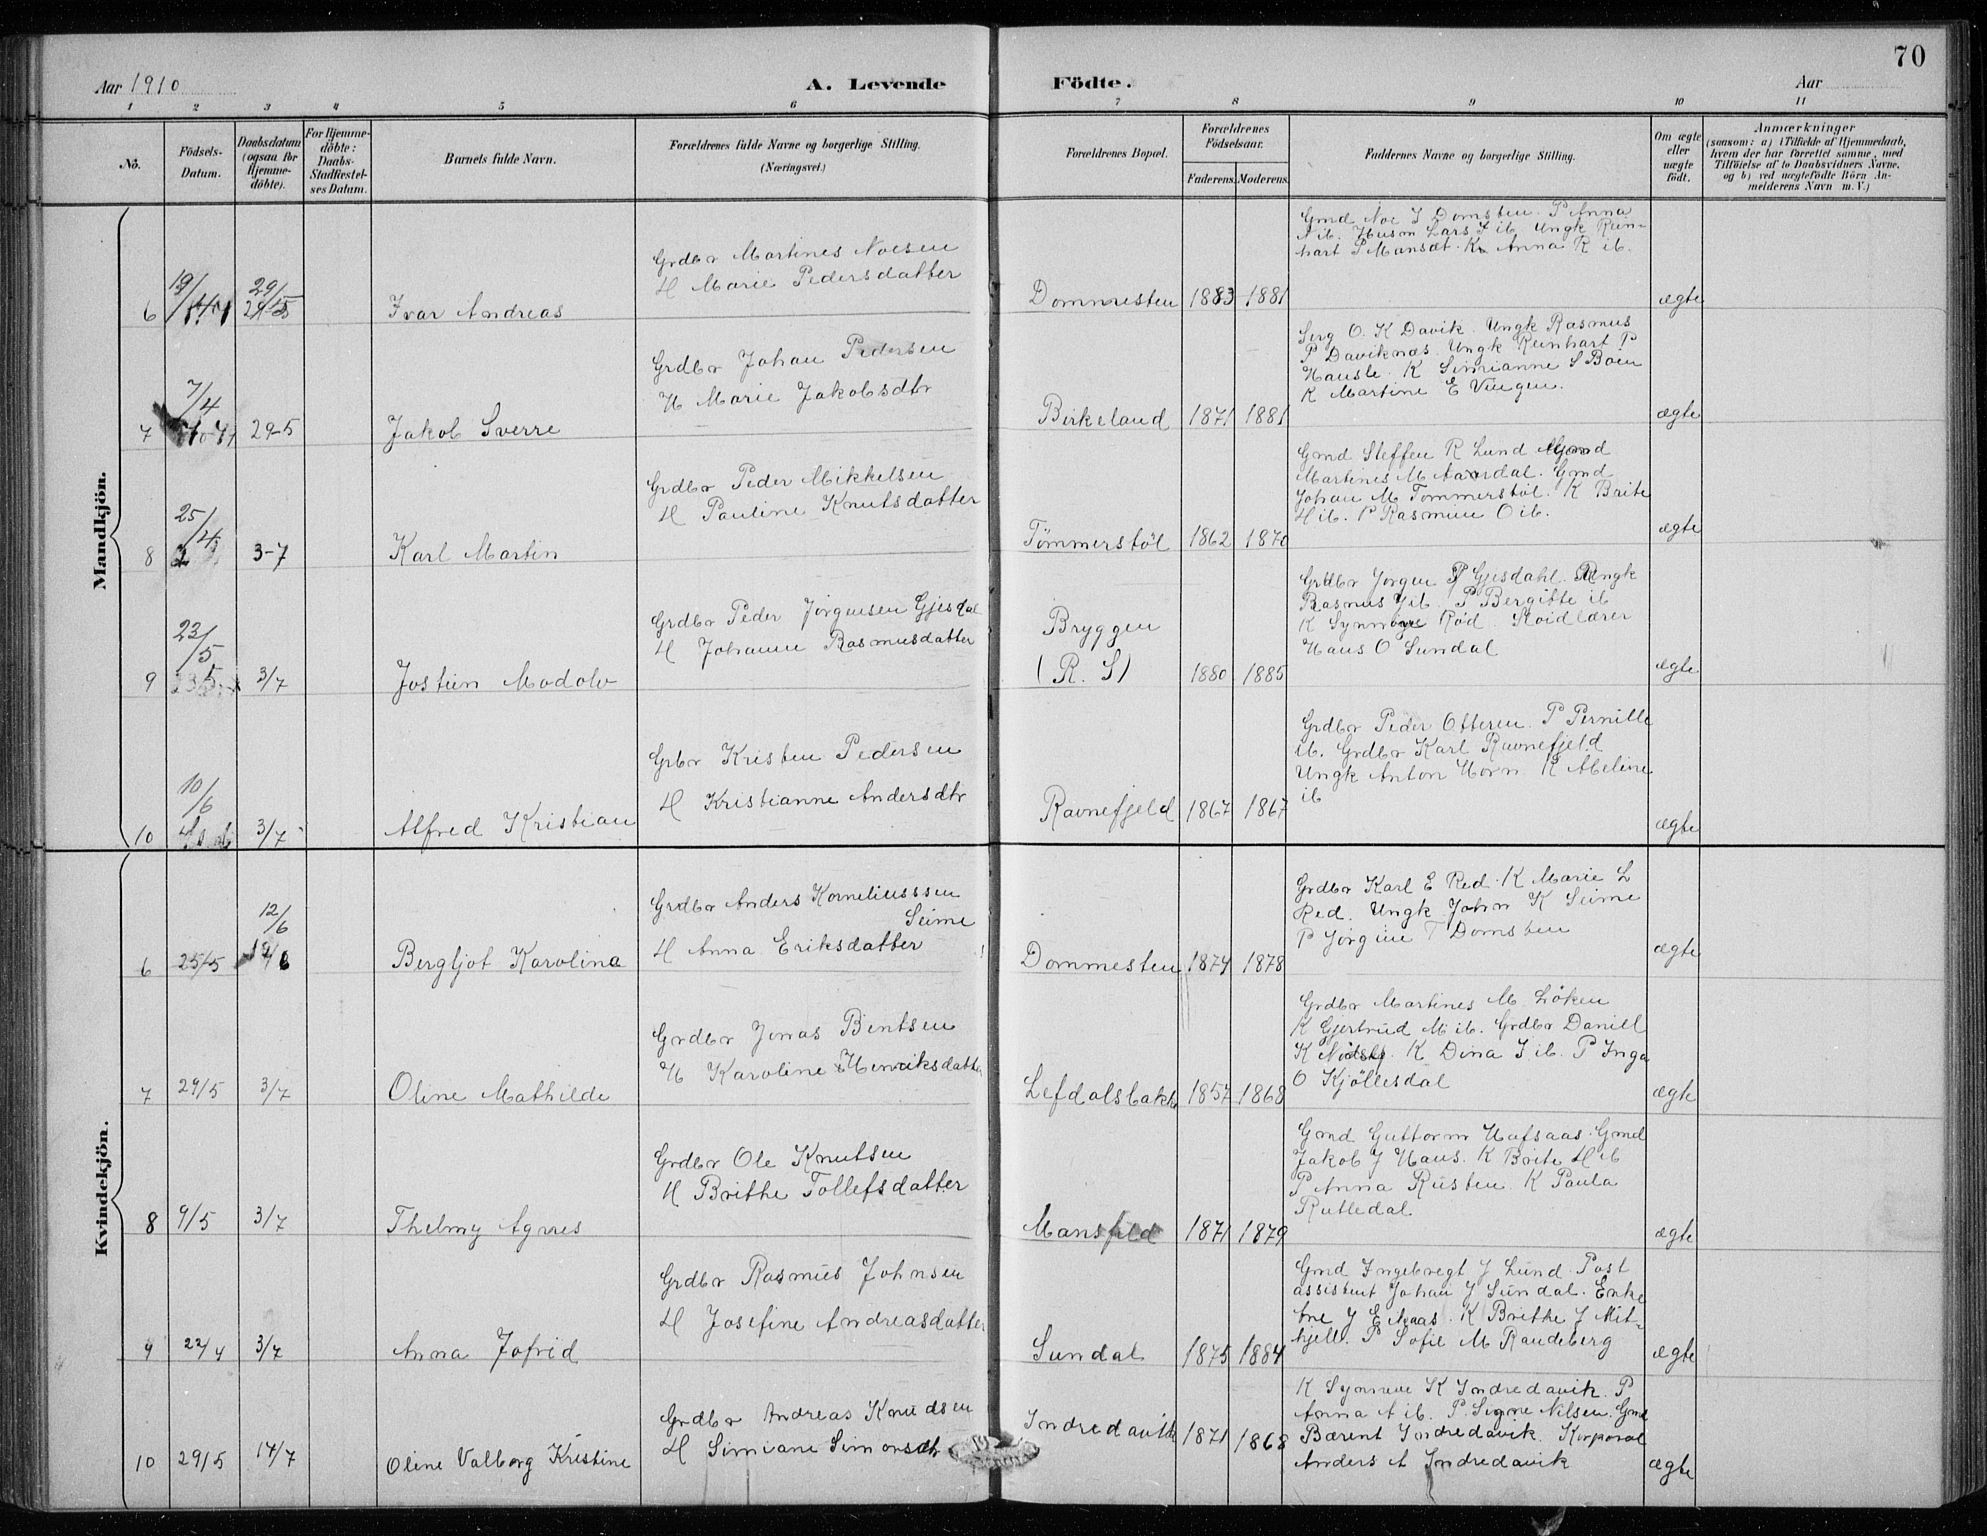 70
Aar 1910
A. Levende
Födte.
Aar
1 2 3 4 5 6 7 8 9 10 11
Nö.
Födsels-
Datum.
Daabsdatum
(ogsaa for
Hjemme-
döbte).
For Hjemme-
döbte:
Daabs-
Stadfæstel-
ses Datum.
Barnets fulde Navn.
Forældrenes fulde Navne og borgerlige Stilling.
(Næringsvei.)
Forældrenes Bopæl.
Forældrenes
Födselsaar.
Faderens. Moderens.
Faddernes Navne og borgerlige Stilling.
Om ægte
eller
uægte
födt.
Anmærkninger
(saasom: a) i Tilfælde af Hjemmedaab,
hvem der har forrettet samme, med
Tilföielse af to Daabsvidners Navne,
og b) ved uægtefödte Börn An-
melderens Navn m. V.)
Mandkjön.
6
29/5
Ivar Andreas
Grdbr Martines Noesen
H Marie Pedersdatter
Dommesten
1883 1881
Gmd Noe J Domsten. P Anna
N ib. Husm Lars J ib Ungk Rein-
hart P Mansæt. K Anna R ib.
ægte
7
7/4
29-5
Jakob Sverre
Grdbr Johan Pedersen
H Marie Jakobsdtr
Birkeland
1871 1881
Serg O. K Davik. Ungk Rasmus
P Daviknæs. Ungk Reinhart P
Hausle. K Simianne S Boen
K Martine E Vingen.
ægte
8
25/4
3-7
Karl Martin
Grdbr Peder Mikkelsen
H Pauline Knutsdatter
Tømmerstøl
1862 1870
Gmd Steffen R Lund Gmd
Martines M Aardal. Gmd
Johan M Tommerstøl. K Brite
H ib. P Rasmine O ib.
ægte
9
23/5
3/7
Jostein Modolv
Grdbr Peder Jørgensen Gjesdal
H Johanne Rasmusdatter
Bryggen
(R. S)
1880 1885
Grdbr Jørgen P Gjesdahl. Ungk
Rasmus J ib. P Bergitte ib
K Synnøve Rød. Skoidlærer
Hans O Sundal
ægte
10
10/6
3/7
Alfred Kristian
Grbr Kristen Pedersen
H Kristianne Andersdtr
Ravnefjeld
1867 1867
Grdbr Peder Otteren. P Pernille
ib. Grdbr Karl Ravnefjeld
Ungk Anton Horn. K Abeline
ib
ægte
Kvindekjön.
6
25/5
12/6
Bergljot Karolina
Grdbr Anders Korneliusssen
Seime
H Anna Eriksdatter
Dommesten
1874 1878
Grdbr Karl E Red. K Marie L
Red. Ungk John K Seime
P Jørgine T Domsten
ægte
7
29/5
3/7
Oline Mathilde
Grdbr Jonas Bentsen
H Karoline Henriksdatter
Lefdalsbakke
1857 1868
Grdbr Martines M. Løken
K Gjertrud M ib. Grdbr Daniel
K. K Dina J ib. P Inga
O Kjöllesdal
ægte
8
9/5
3/7
Thelmy Agnes
Grdbr Ole Knutsen
H Brithe Tollefsdatter
Mansfeld
1871 1879
Gmd Guttorm Hafsaas. Gmd
Jakob J Haus. K Brite H ib
P Anna Rusten. K Paula
Rutledal
ægte
9
22/4
3/7
Anna Jofrid
Grdbr Rasmus Johnsen
H Josefine Andreasdatter
Sundal
1875 1884
Gmd Ingebregt J Lund. Post
assistent Johan J Sundal. Enke
Ane J. K Brithe J Mit-
hjell. P Sofie M Raudeberg
ægte
10
29/5
17/7
Oline Valborg Kristine
Grdbr Andreas Knudsen
H Simiane Simonsdtr
Indredavik
1871 1868
K Synneve K Indredavik. P
Anna A ib. P. Signe Nilsen. Gmd
Bærent Indredavik. Korporal
Anders A Indredavik
ægte